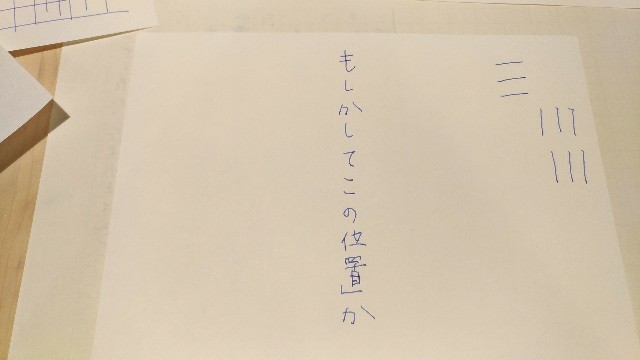 もしかしてこの位置」か